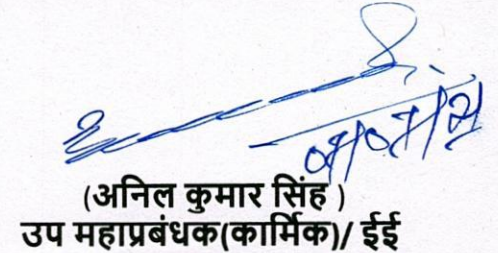 (अनिल कुमार सिंह )
उप महाप्रबंधक(कार्मिक)/ ईई